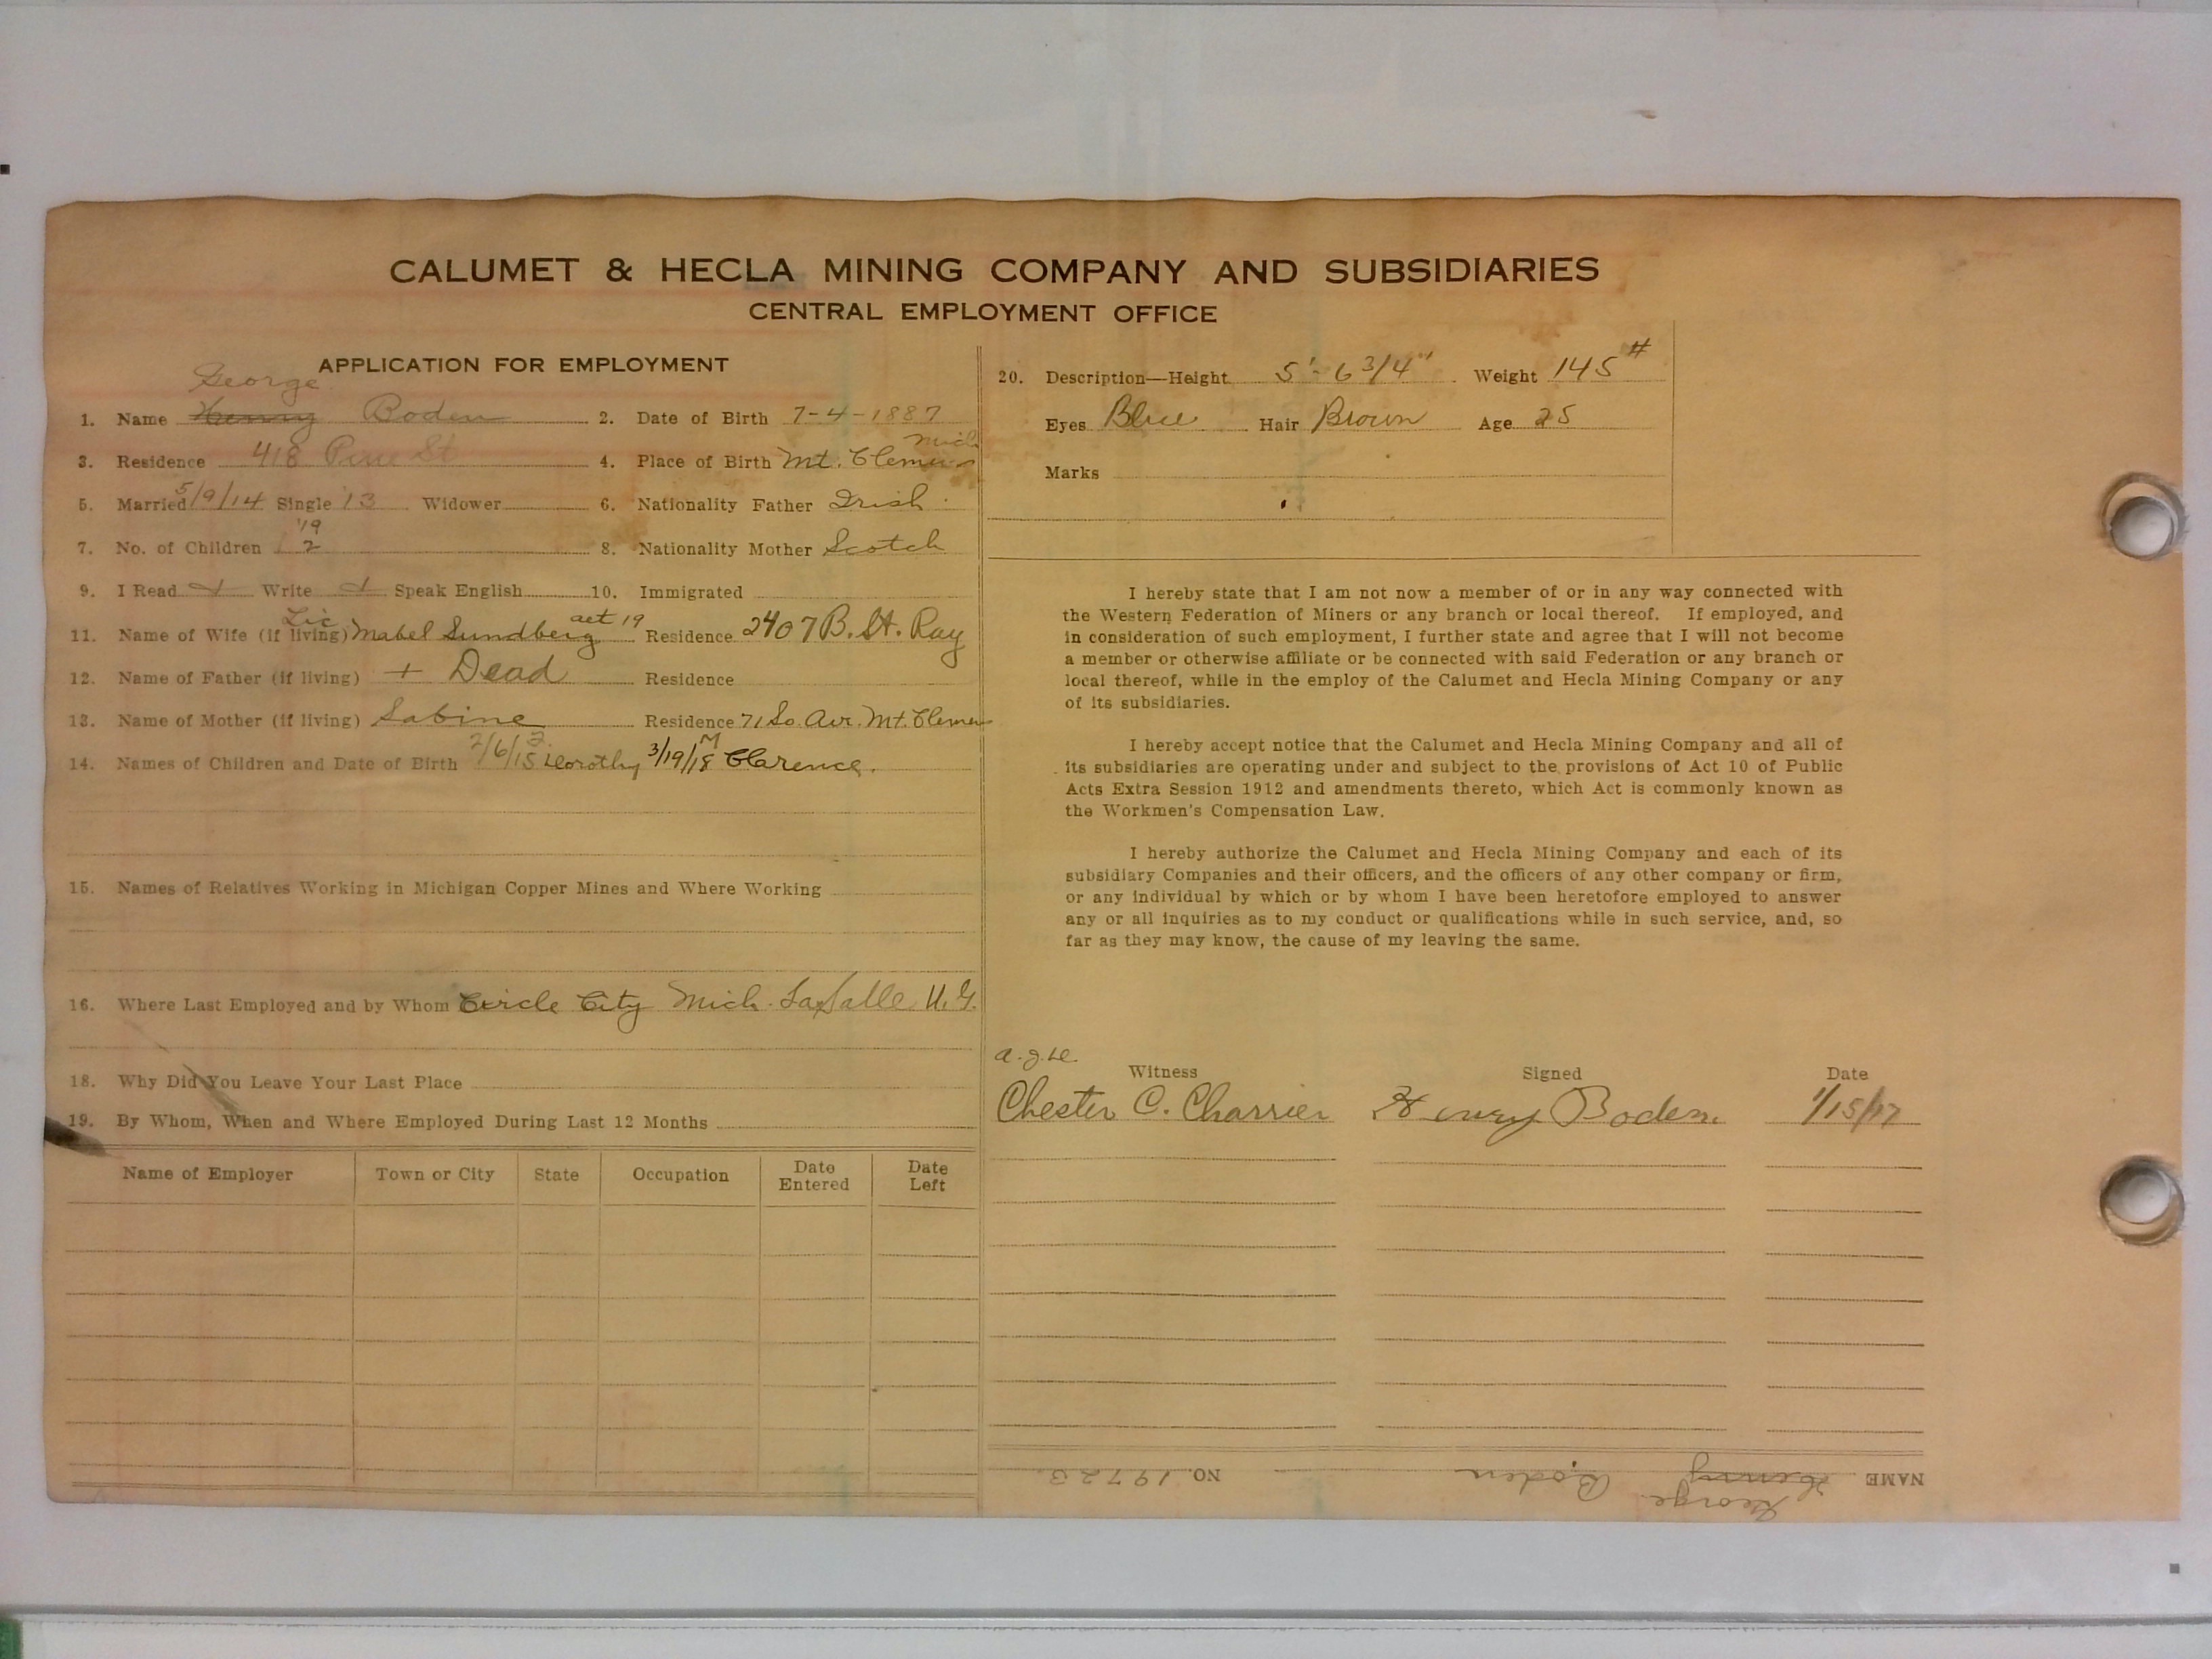 CALUMET & HECLA MINING COMPANY AND SUBSIDIARIES
CENTRAL EMPLOYMENT OFFICE
APPLICATION FOR EMPLOYMENT
George
1. Name Henry Boden 2. Date of Birth 7-4-1887
Mich
3. Residence 418 Pine St 4. Place of Birth Mt. Clemens
5. Married 5/9/14 Single '13 Widower 6. Nationality Father Irish
'19
7. No. of Children 2 8. Nationality Mother Scotch
9. I Read + Write + Speak English 10. Immigrated
Lic aet 19
11. Name of Wife (if living) Mabel Sundberg Residence 2407 B. St. Ray
12. Name of Father (if living) + Dead Residence
13. Name of Mother (if living) Sabine Residence 71 So. Avr. Mt. Clemens
14. Names of Children and Date of Birth 2/6/15 Dorothy 3/19/18 M Clarence.
15. Names of Relatives Working in Michigan Copper Mines and Where Working
16. Where Last Employed and by Whom Circle City Mich. LaSalle U.G.
18. Why Did You Leave Your Last Place
19. By Whom, When and Where Employed During Last 12 Months
Name of Employer Town or City State Occupation Date Entered Date Left
20. Description—Height 5'-6 3/4" Weight 145#
Eyes Blue Hair Brown Age 25
Marks
I hereby state that I am not now a member of or in any way connected with
the Western Federation of Miners or any branch or local thereof. If employed, and
in consideration of such employment, I further state and agree that I will not become
a member or otherwise affiliate or be connected with said Federation or any branch or
local thereof, while in the employ of the Calumet and Hecla Mining Company or any
of its subsidiaries.
I hereby accept notice that the Calumet and Hecla Mining Company and all of
its subsidiaries are operating under and subject to the provisions of Act 10 of Public
Acts Extra Session 1912 and amendments thereto, which Act is commonly known as
the Workmen's Compensation Law.
I hereby authorize the Calumet and Hecla Mining Company and each of its
subsidiary Companies and their officers, and the officers of any other company or firm,
or any individual by which or by whom I have been heretofore employed to answer
any or all inquiries as to my conduct or qualifications while in such service, and, so
far as they may know, the cause of my leaving the same.
Witness Signed Date
Chester C. Charrier Henry Boden 1/15/17
George
NAME Henry Boden NO. 19723